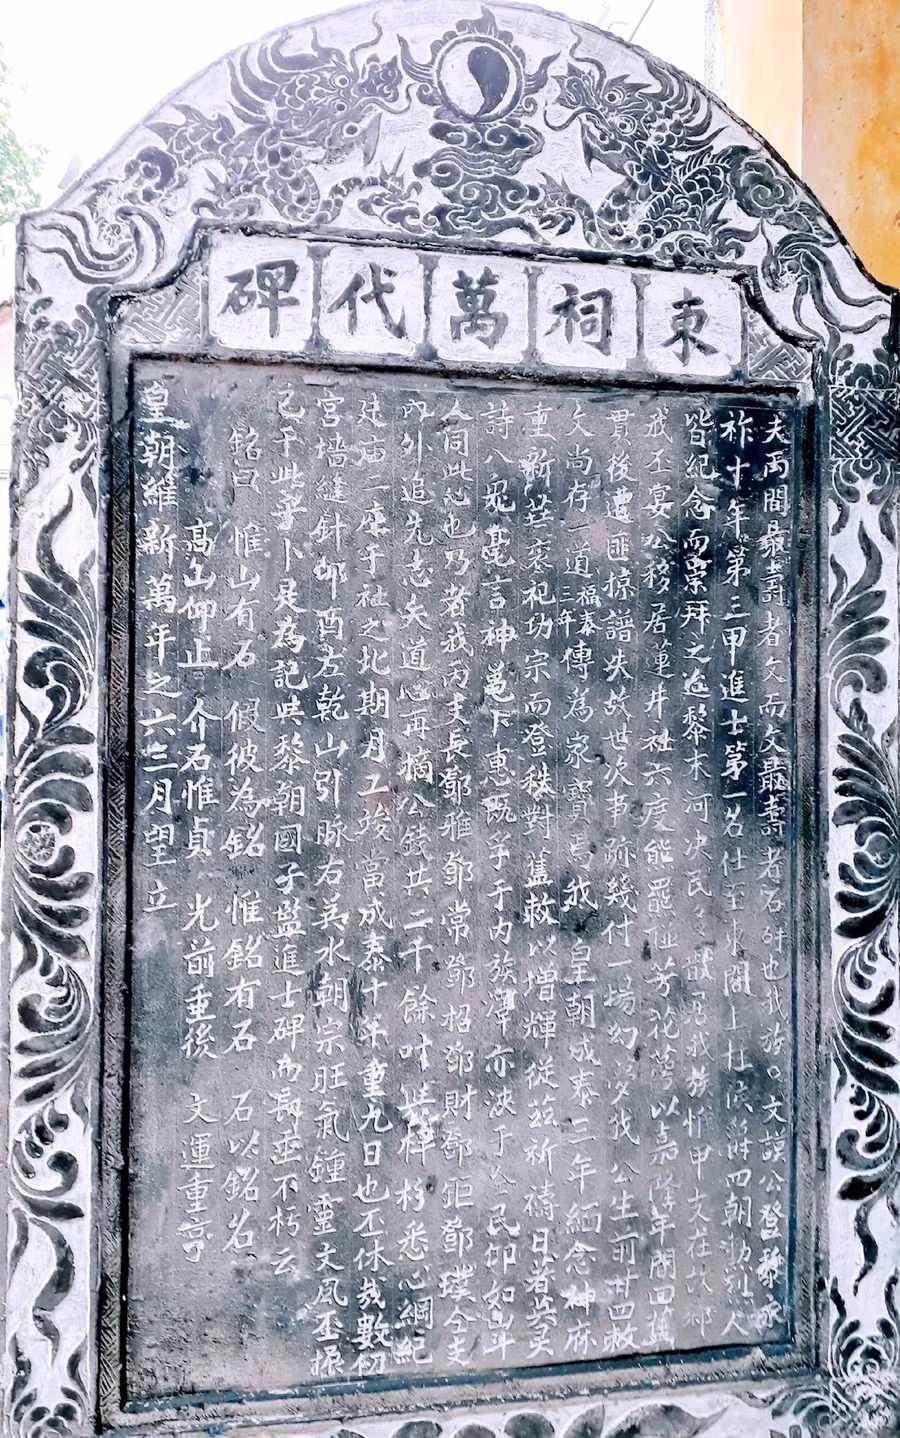 東祠萬代碑
夫兩間最壽者文而文最壽者石碑也我族文謨公登黎永
祚十年第三甲進士第一名仕至東閣上柱侯爵四朝勳烈人
皆紀念而崇拜之迨黎末河决民散居我族忻甲支在玆鄉
戒丕宴公移居蓮井社六度能羆
貫後遭匪掠譜失故世次事跡幾付一場幻夢我公生前廿四敕
文尚存一道福泰三年傳為家寶焉我皇朝成泰三年緬念神庥
重新塋褒祀功宗而登秩對舊敕以增輝從茲祈禱日著英灵
詩八鬼毫言神下惠既孚于内族澤亦浹于公民仰如山斗
人同此心也乃者我丙支長鄧雅鄧常鄧招鄧財鄧距鄧璞令支
内外追先志矢道心再摘公錢共二千餘悉心綱紀
廷庙二座于社之北期月工竣當成泰十年重九日也丕休哉數仞
宮墻縫針卯酉左乾山引脉右英水朝宗旺氣鍾靈文風丕振
己于此乎卜是為記與黎朝國子監進士碑而壽垂不朽云
銘曰 惟山有石 假彼為銘 惟銘有石 石以銘名
高山仰止 介石惟貞 光前垂後 文運重亨
皇朝維新萬年之六三月望立